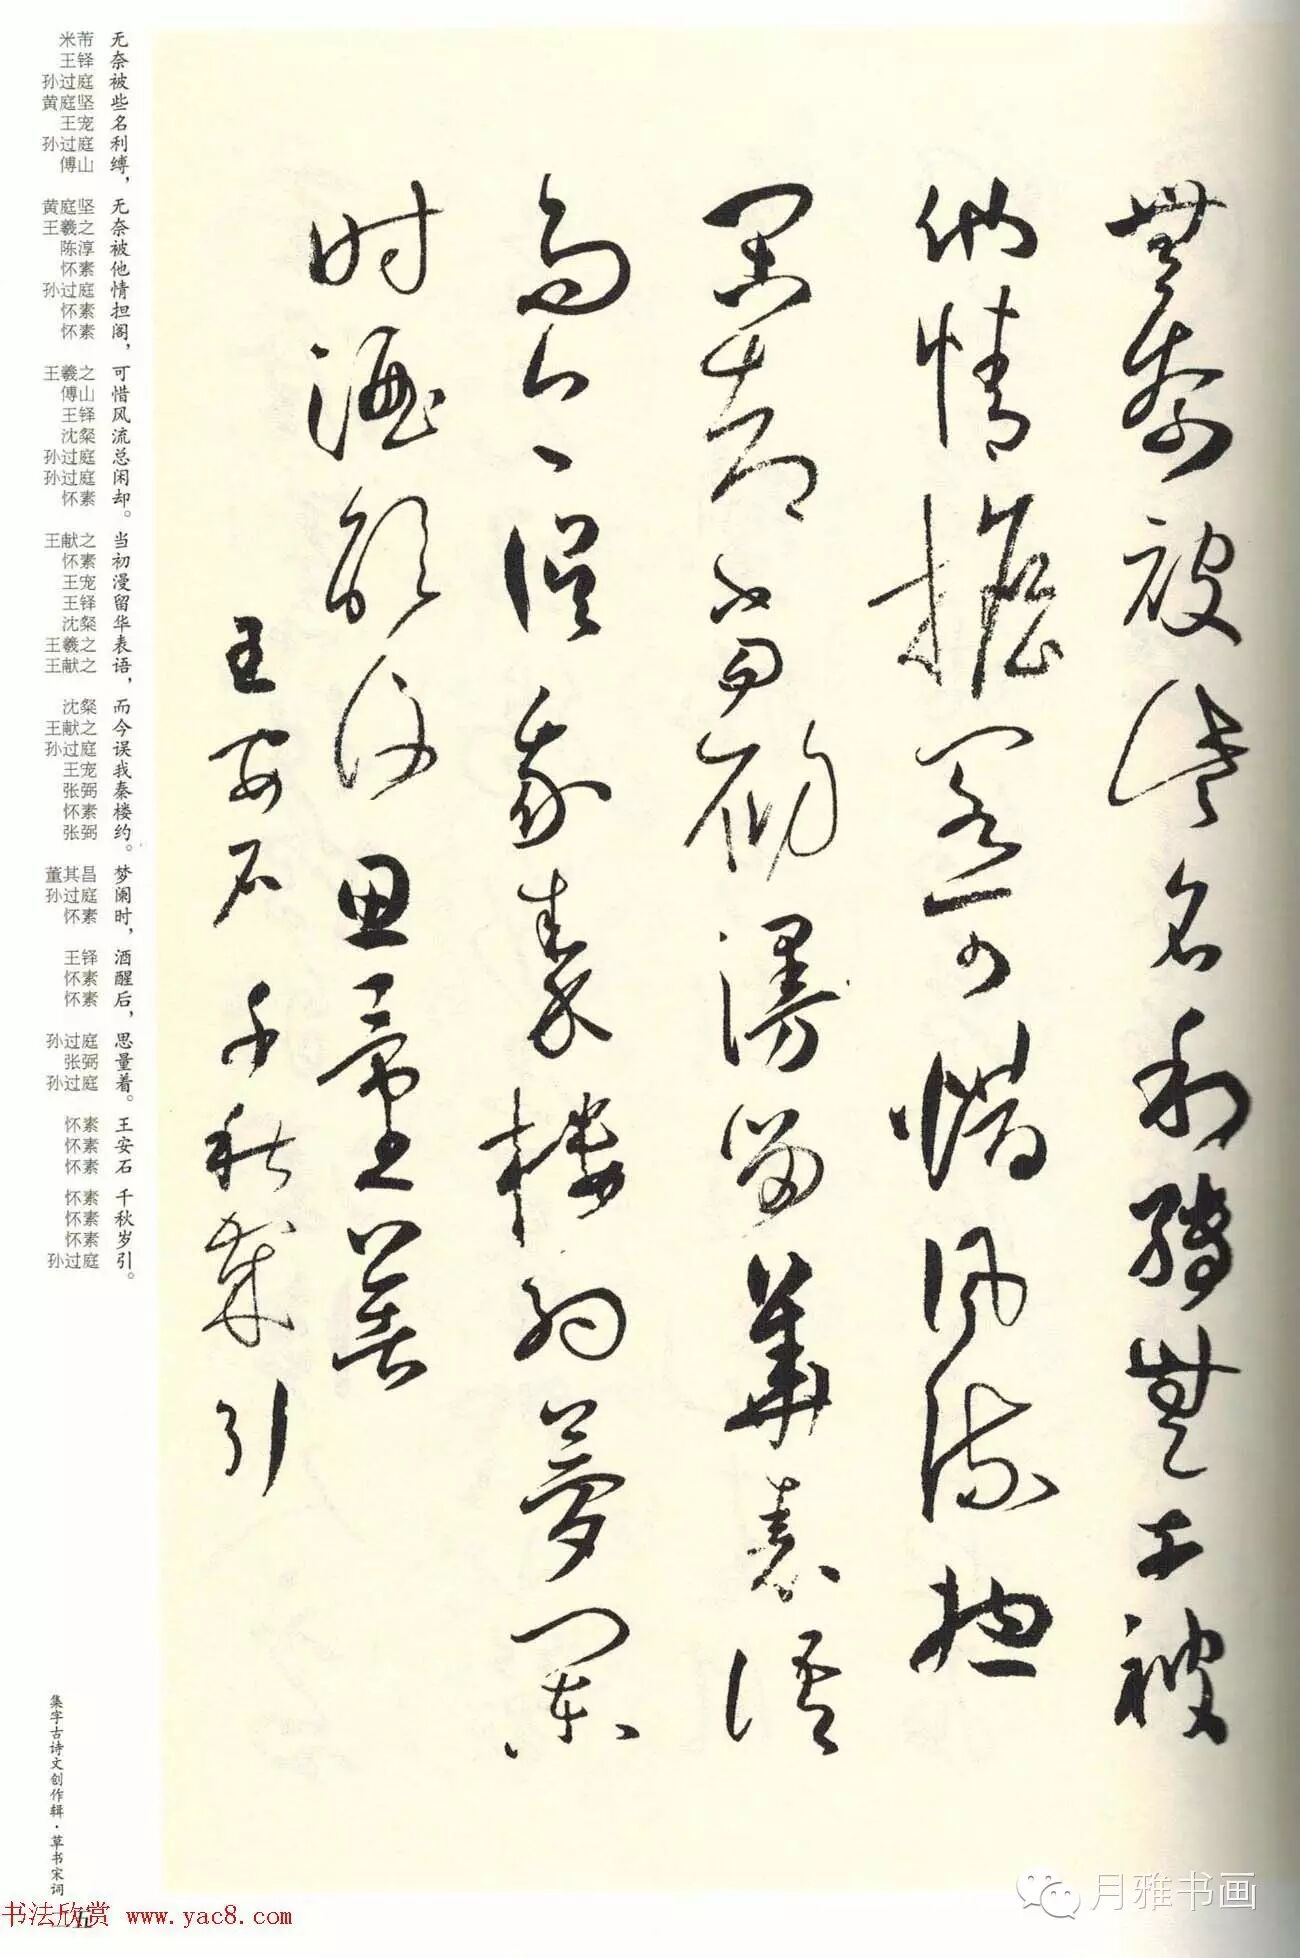 無奈被些名利縛無奈被
他情擔閣可惜風流總
閑却當初漫留華表語
而今誤我秦樓約夢闌
时酒醒後思量着
王安石 千秋歲引
无奈被些名利缚，无奈被他情担阁，可惜风流总闲却。当初漫留华表语，而今误我秦楼约。梦阑时，酒醒后，思量着。王安石 千秋岁引。
米芾 王铎 孙过庭 黄庭坚 王宠 孙过庭 傅山 黄庭坚 王羲之 陈淳 怀素 孙过庭 怀素 怀素 王羲之 傅山 王铎 沈粲 孙过庭 孙过庭 怀素 王献之 怀素 王宠 王铎 沈粲 王羲之 王献之 沈粲 王献之 孙过庭 王宠 张弼 怀素 张弼 董其昌 孙过庭 怀素 王铎 怀素 怀素 孙过庭 张弼 孙过庭 怀素 怀素 怀素 怀素 怀素 怀素 孙过庭
集字古诗文创作辑·草书宋词
书法欣赏 www.yac8.com
月雅书画